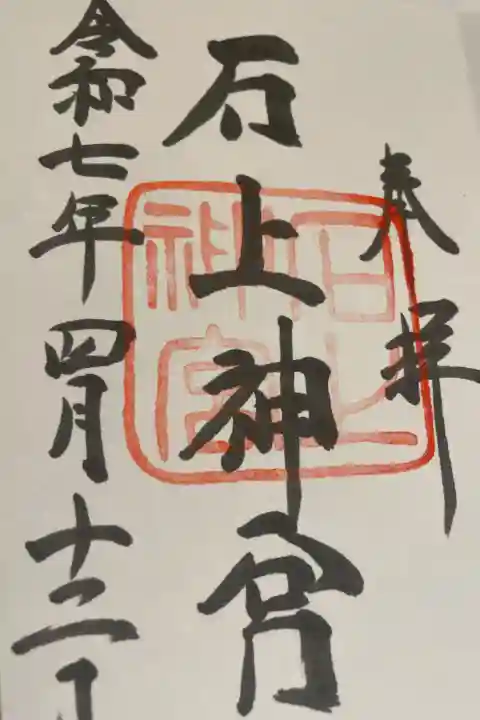 奉拝
石上神宮
石上神宮
令和七年四月十二日